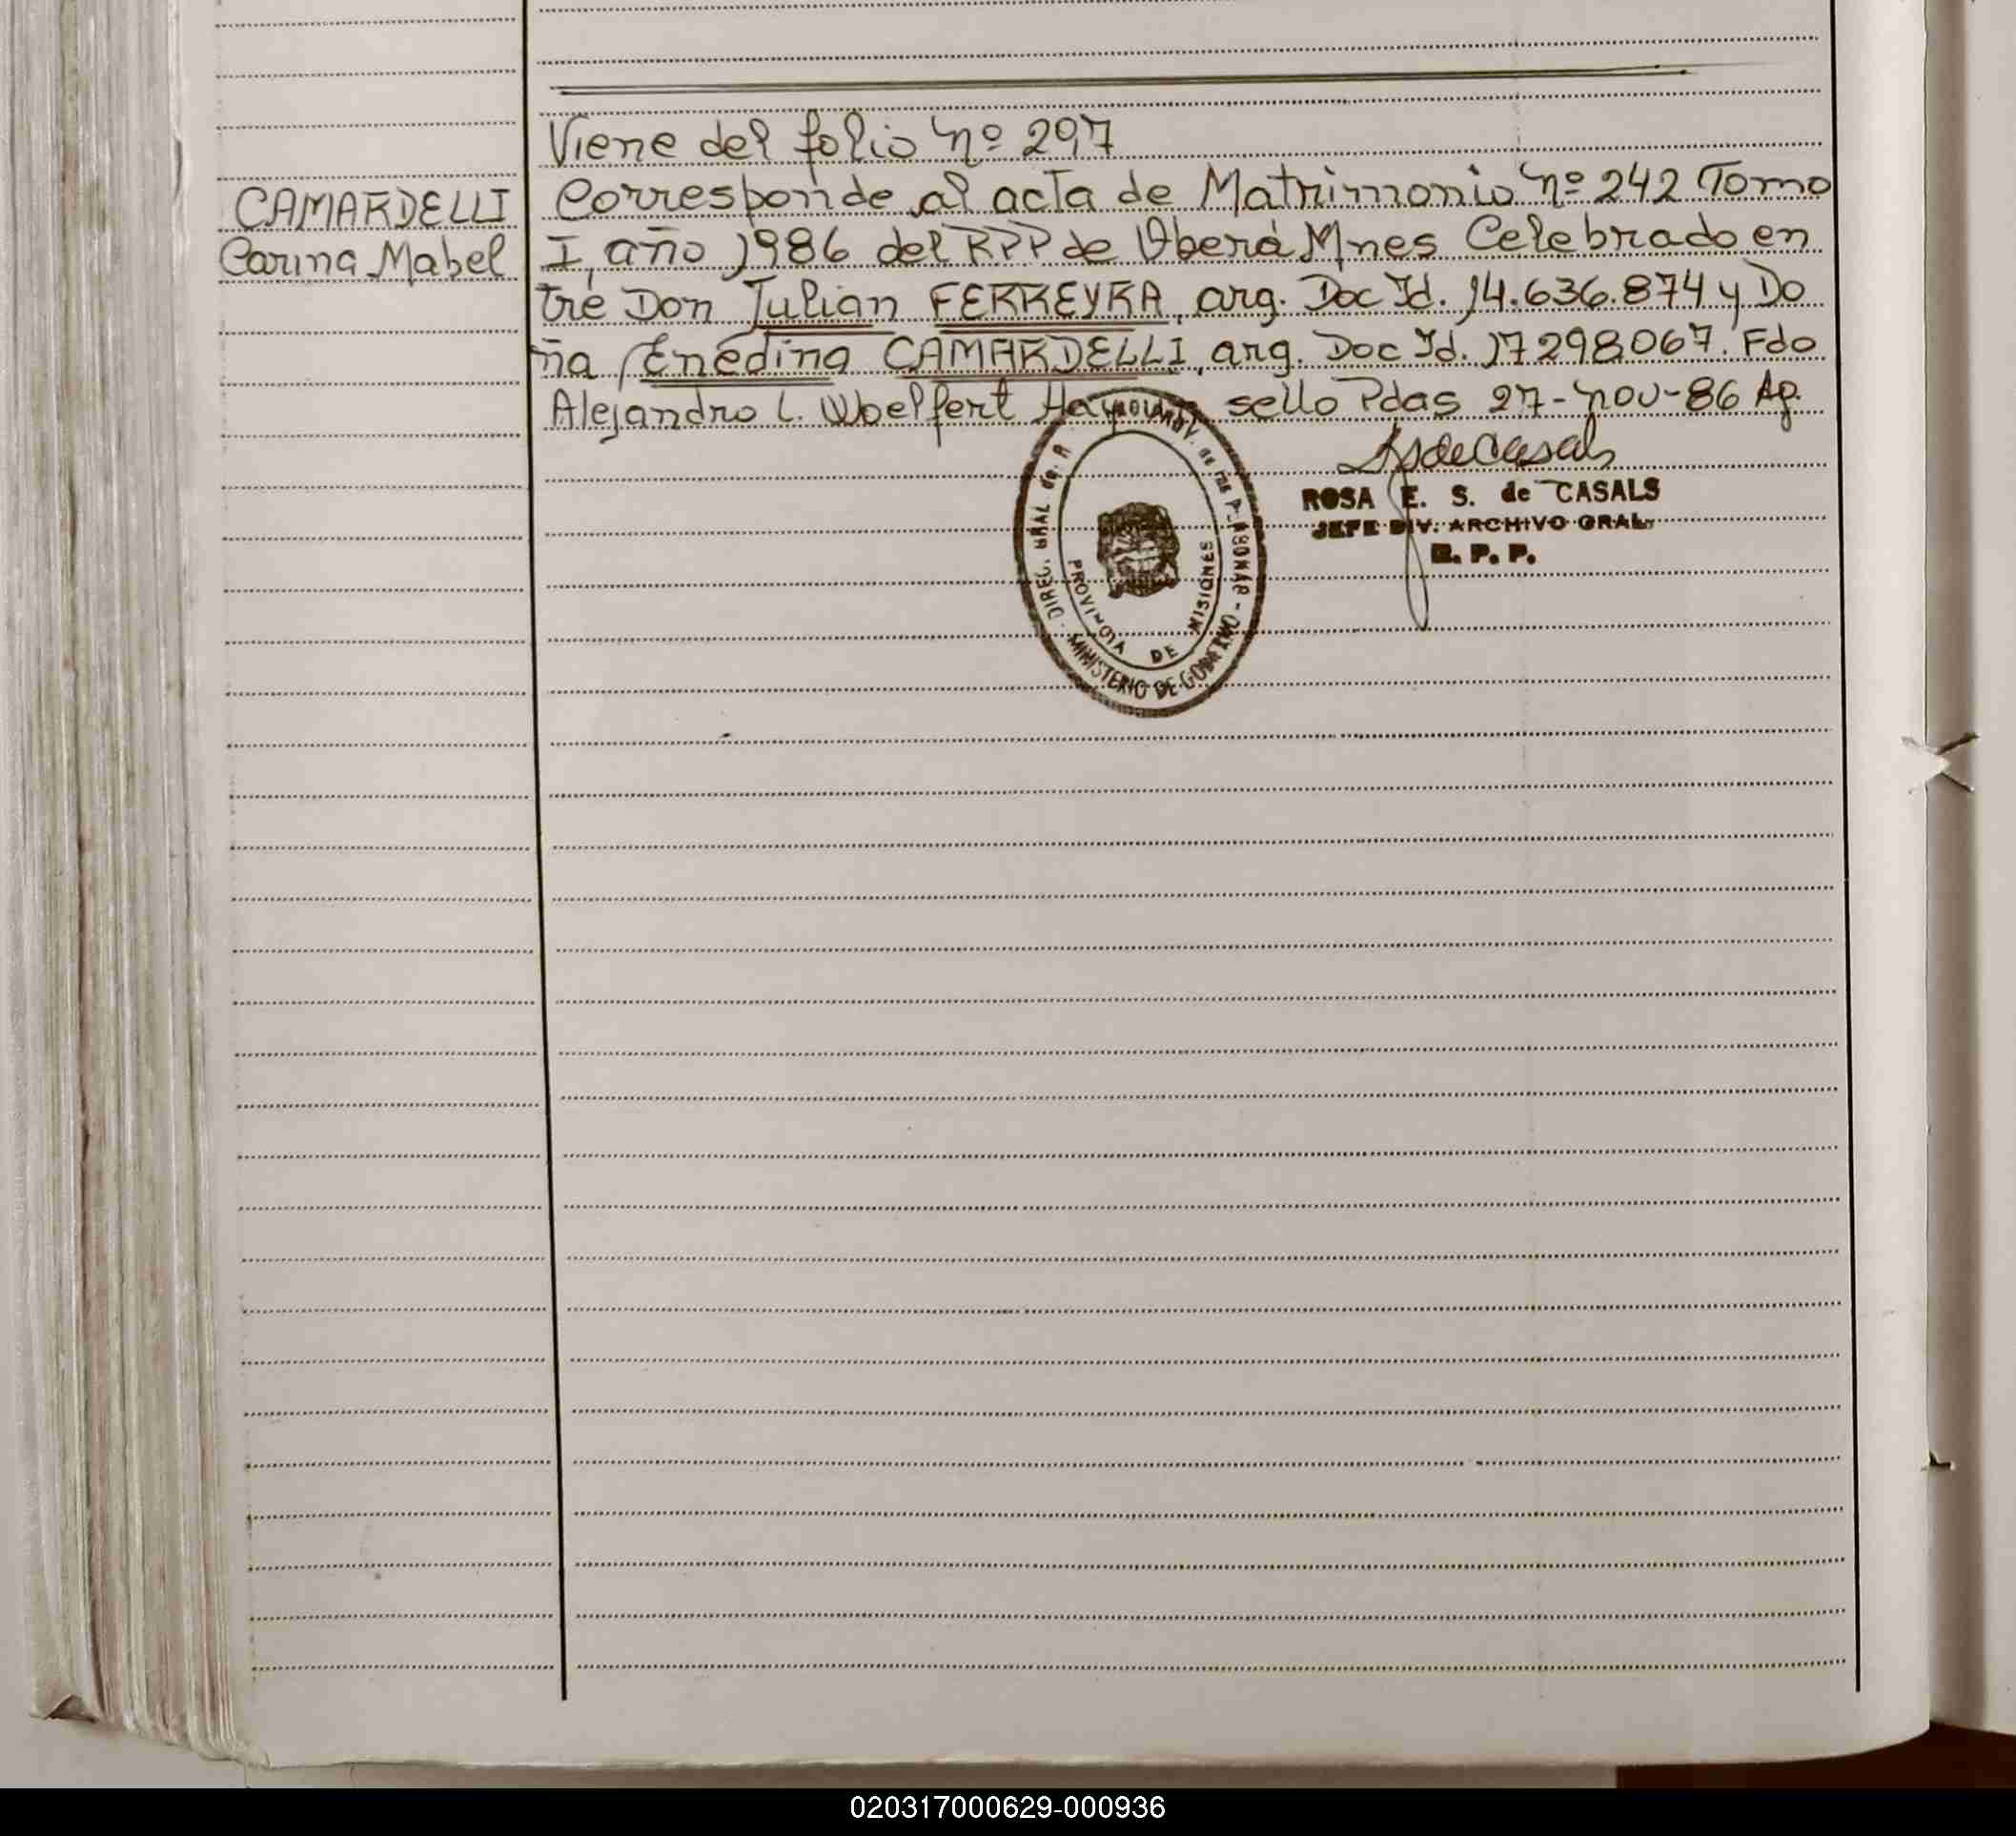 Viene del folio nº 297
CAMARDELLI
Carina Mabel
Corresponde al acta de Matrimonio nº 242 Tomo
I, año 1986 del RPP de Oberá Mnes Celebrado en
tre Don Julian FERREYRA, arg. Doc Id. 14.636.874 y Do
ña Enedina CAMARDELLI, arg. Doc Id. 17298067. Fdo
Alejandro L. Woelfert Hay sello Pdas 27-nov-86 Ap.
ROSA E. S. de CASALS
JEFE DIV. ARCHIVO GRAL.
R. P. P.
PROVINCIA DE MISIONES
MINISTERIO DE GOBIERNO
020317000629-000936